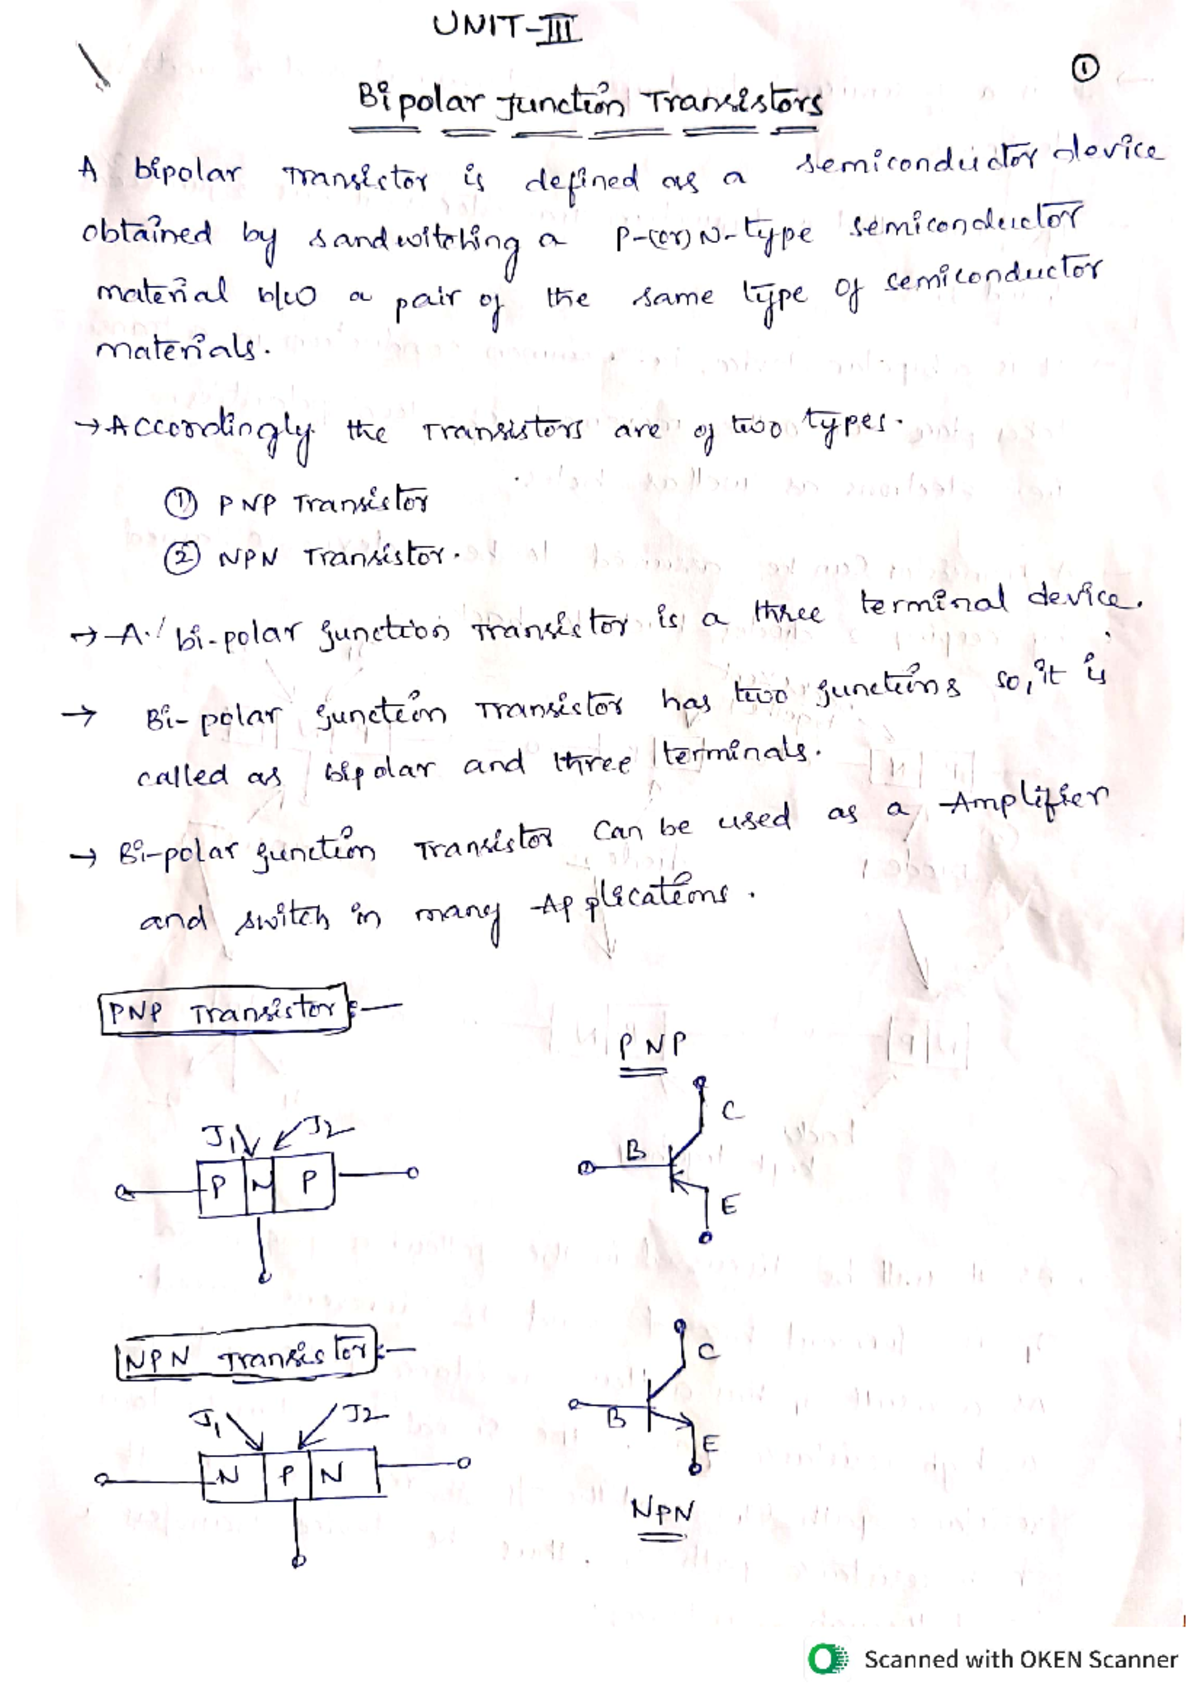 UNIT-III
①
Bipolar Junction Transistors
A bipolar Transistor is defined as a semiconductor device
obtained by sandwitching a P-(or) N-type semiconductor
material b/w a pair of the same type of semiconductor
materials.
→ Accordingly the Transistors are of two types.
① PNP Transistor
② NPN Transistor.
→ A bi-polar junction Transistor is a three terminal device.
→ Bi-polar junction Transistor has two junctions so, it is
called as bipolar and three terminals.
→ Bi-polar junction Transistor can be used as a Amplifier
and switch in many Applications.
PNP Transistor :—
PNP
J1 J2
P N P
C
B
E
NPN Transistor :—
J1 J2
N P N
C
B
E
NPN
Scanned with OKEN Scanner